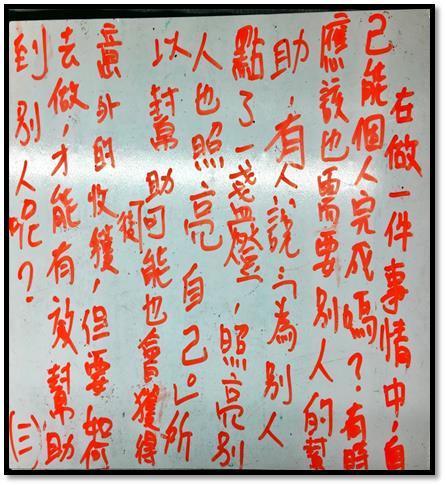 在做一件事情中,自
己能個人完成嗎?有時
應該也需要別人的幫
助,有人說:「為別人
點了一盞燈,照亮別
人也照亮自己」。所
以封幫助可能也會獲得
意外的收獲,但要如何
去做,才能有效幫助
到別人呢?(三)